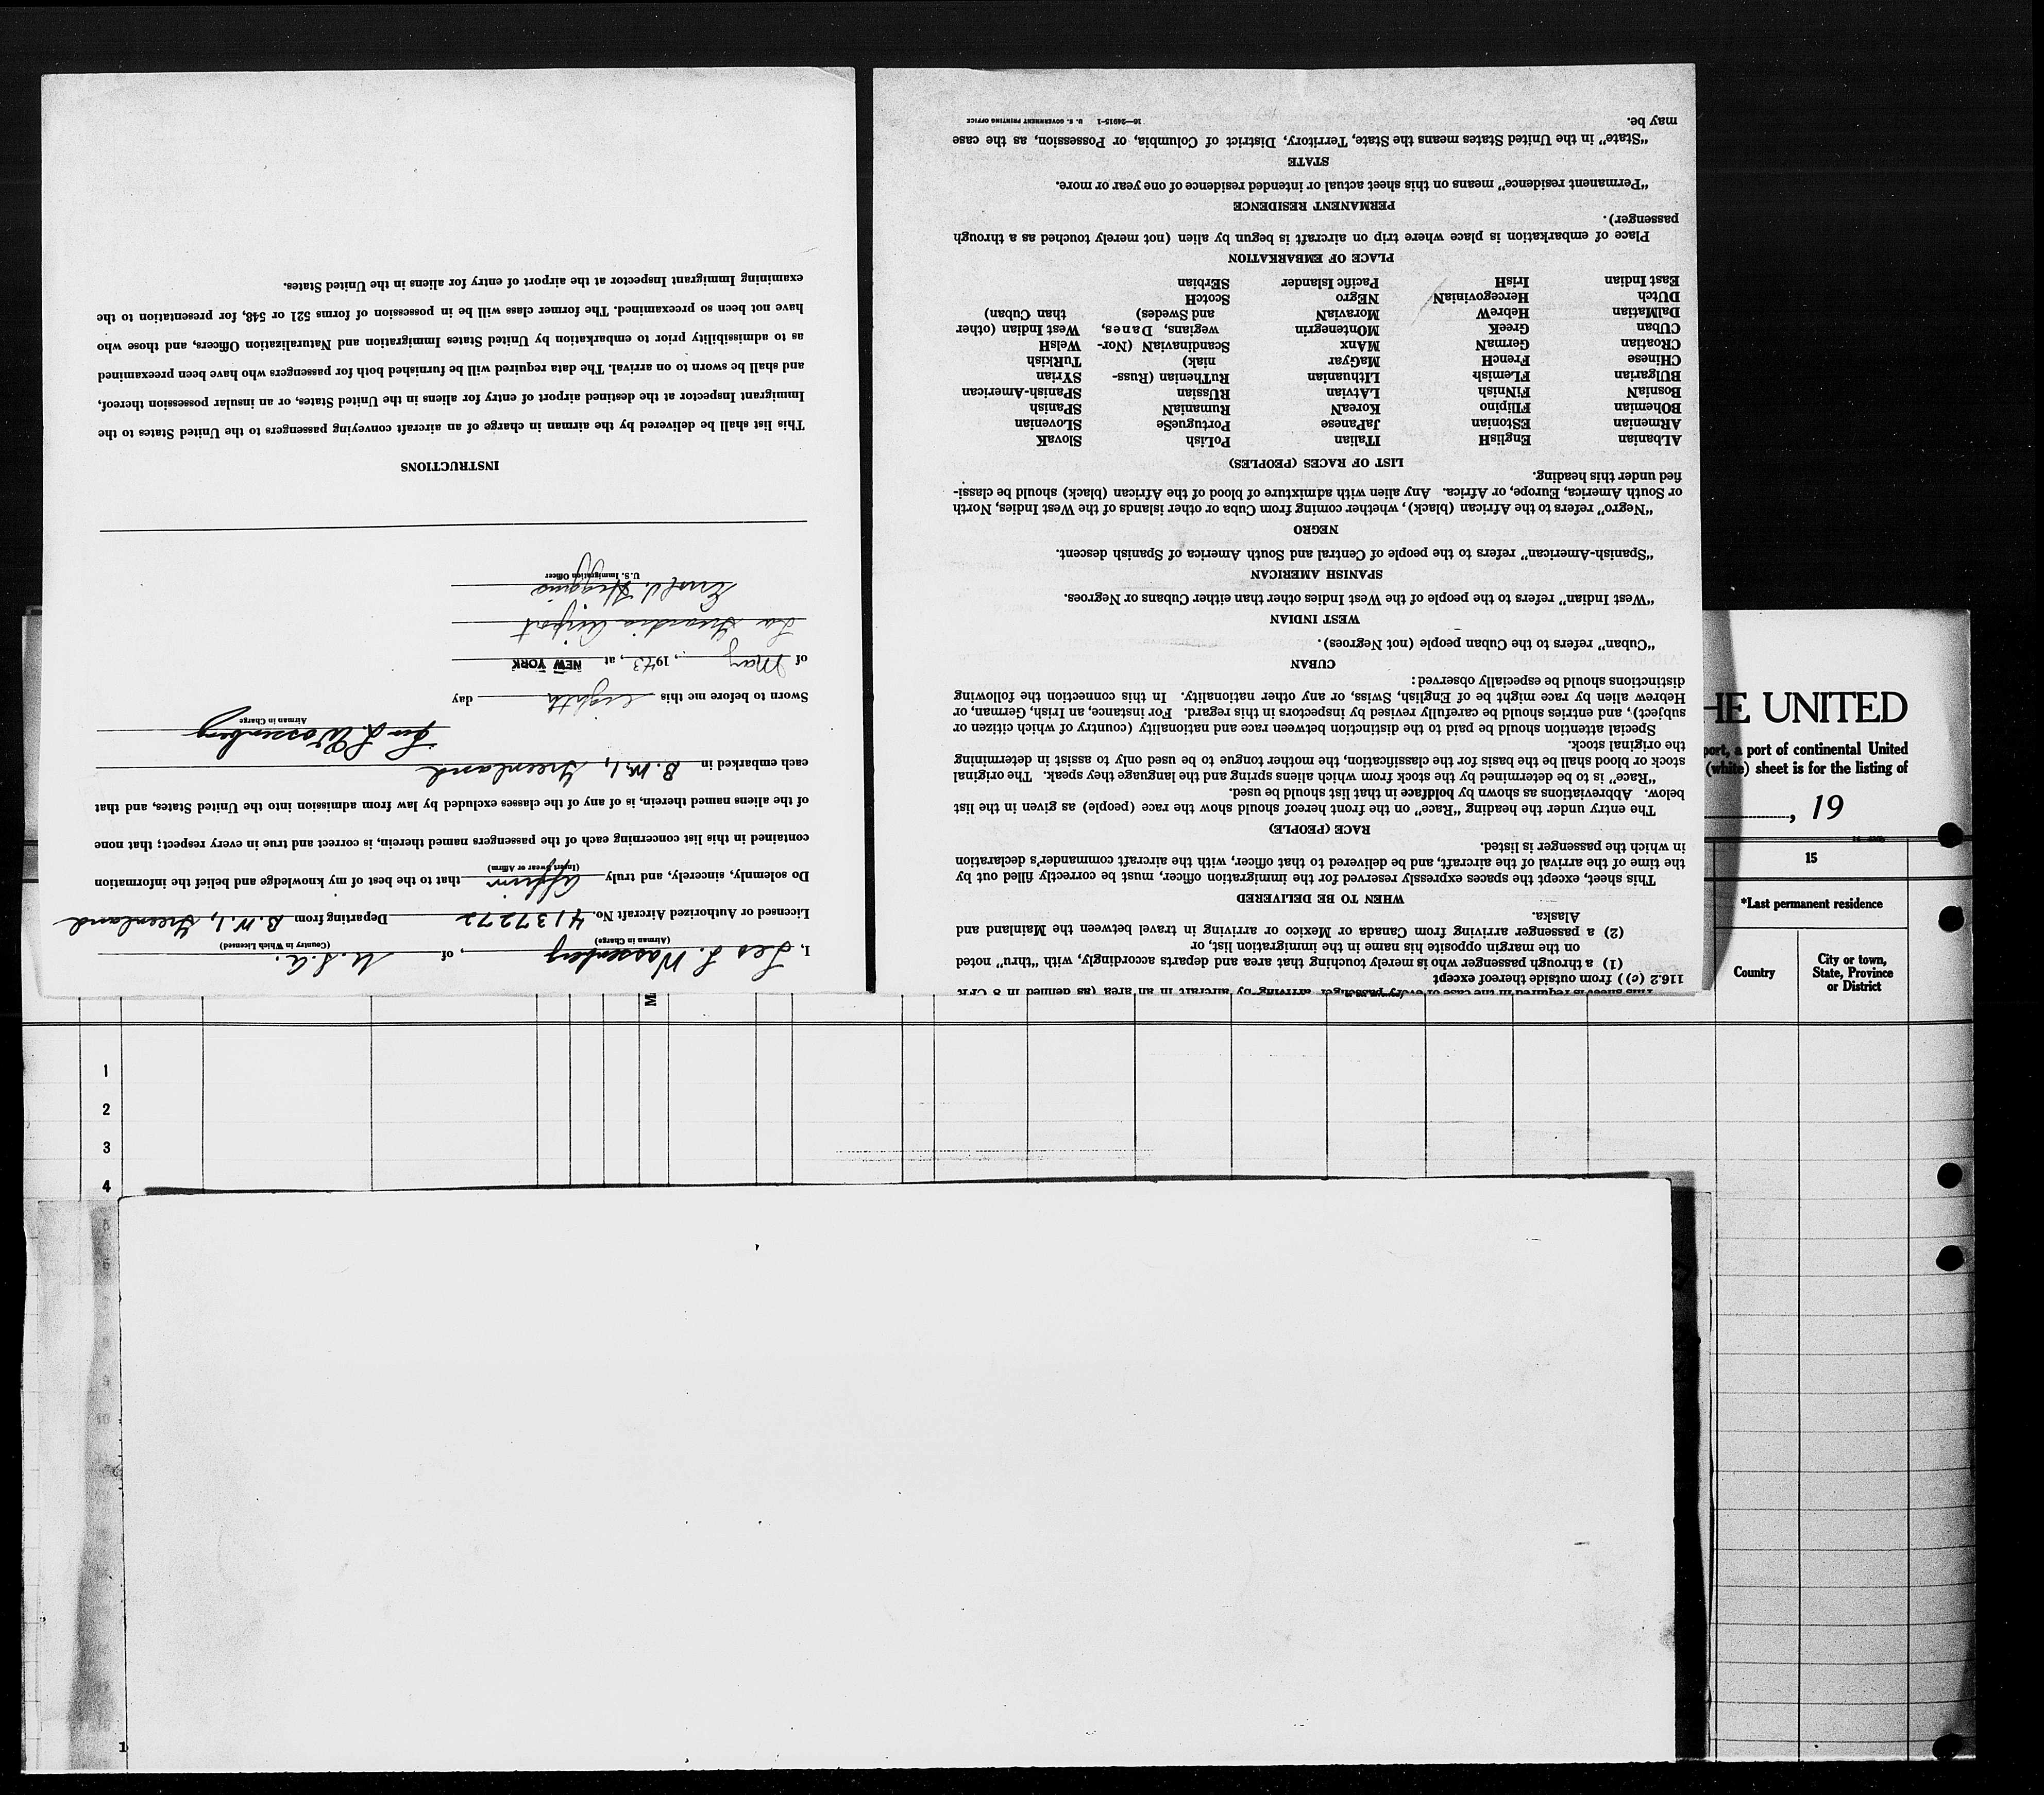 I, Leo L. Wassenberg, of U.S.A.
(Airman in Charge) (Country in Which Licensed)
Licensed or Authorized Aircraft No. 4137272 Departing from B.W.1, Greenland
Do solemnly, sincerely, and truly affirm that to the best of my knowledge and belief the information
(Insert Swear or Affirm)
contained in this list concerning each of the passengers named therein, is correct and true in every respect; that none
of the aliens named therein, is of any of the classes excluded by law from admission into the United States, and that
each embarked in B.W.1, Greenland
Leo L Wassenberg
Airman in Charge
Sworn to before me this eighth day
of May, 1943, at NEW YORK
La Guardia Airport
Higgins
U.S. Immigration Officer
INSTRUCTIONS
This list shall be delivered by the airman in charge of an aircraft conveying passengers to the United States to the
Immigrant Inspector at the destined airport of entry for aliens in the United States, or an insular possession thereof,
and shall be sworn to on arrival. The data required will be furnished both for passengers who have been preexamined
as to admissibility prior to embarkation by United States Immigration and Naturalization Officers, and those who
have not been so preexamined. The former class will be in possession of forms 521 or 548, for presentation to the
examining Immigrant Inspector at the airport of entry for aliens in the United States.
This sheet is required in the case of every passenger arriving by aircraft in an area (as defined in 8 CFR
116.2 (c)) from outside thereof except
(1) a through passenger who is merely touching that area and departs accordingly, with "thru" noted
on the margin opposite his name in the immigration list, or
(2) a passenger arriving from Canada or Mexico or arriving in travel between the Mainland and
Alaska.
WHEN TO BE DELIVERED
This sheet, except the spaces expressly reserved for the immigration officer, must be correctly filled out by
the time of the arrival of the aircraft, and be delivered to that officer, with the aircraft commander's declaration
in which the passenger is listed.
RACE (PEOPLE)
The entry under the heading "Race" on the front hereof should show the race (people) as given in the list
below. Abbreviations as shown by boldface in that list should be used.
"Race" is to be determined by the stock from which aliens spring and the language they speak. The original
stock or blood shall be the basis for the classification, the mother tongue to be used only to assist in determining
the original stock.
Special attention should be paid to the distinction between race and nationality (country of which citizen or
subject), and entries should be carefully revised by inspectors in this regard. For instance, an Irish, German, or
Hebrew alien by race might be of English, Swiss, or any other nationality. In this connection the following
distinctions should be especially observed:
CUBAN
"Cuban" refers to the Cuban people (not Negroes).
WEST INDIAN
"West Indian" refers to the people of the West Indies other than either Cubans or Negroes.
SPANISH AMERICAN
"Spanish-American" refers to the people of Central and South America of Spanish descent.
NEGRO
"Negro" refers to the African (black), whether coming from Cuba or other islands of the West Indies, North
or South America, Europe, or Africa. Any alien with admixture of blood of the African (black) should be classi-
fied under this heading.
LIST OF RACES (PEOPLES)
ALbanian EnglisH ITalian PoLish SlovaK
ARmenian EStonian JaPanese PortugueSe SLovenian
BOhemian FIlipino KoreaN RumaniaN SPanish
BosniaN FiNnish LAtvian RUssian SPanish-American
BUlgarian FLemish LIthuanian RuThenian (Russ- SYrian
CHinese FrencH MaGyar niak) TuRkish
CRoatian GermaN MAnx ScandinaviaN (Nor- WelsH
CUban GreeK MOntenegrin wegians, Danes, West Indian (other
DalMatian HebreW MoraviaN and Swedes) than Cuban)
DUtch HercegoviniaN NEgro ScotcH
East Indian IrisH Pacific Islander SErbian
PLACE OF EMBARKATION
Place of embarkation is place where trip on aircraft is begun by alien (not merely touched as a through
passenger).
PERMANENT RESIDENCE
"Permanent residence" means on this sheet actual or intended residence of one year or more.
STATE
"State" in the United States means the State, Territory, District of Columbia, or Possession, as the case
may be.
16—24915-1 U. S. GOVERNMENT PRINTING OFFICE
HE UNITED
port, a port of continental United
(white) sheet is for the listing of
, 19
15
*Last permanent residence
Country
City or town,
State, Province
or District
1
2
3
4